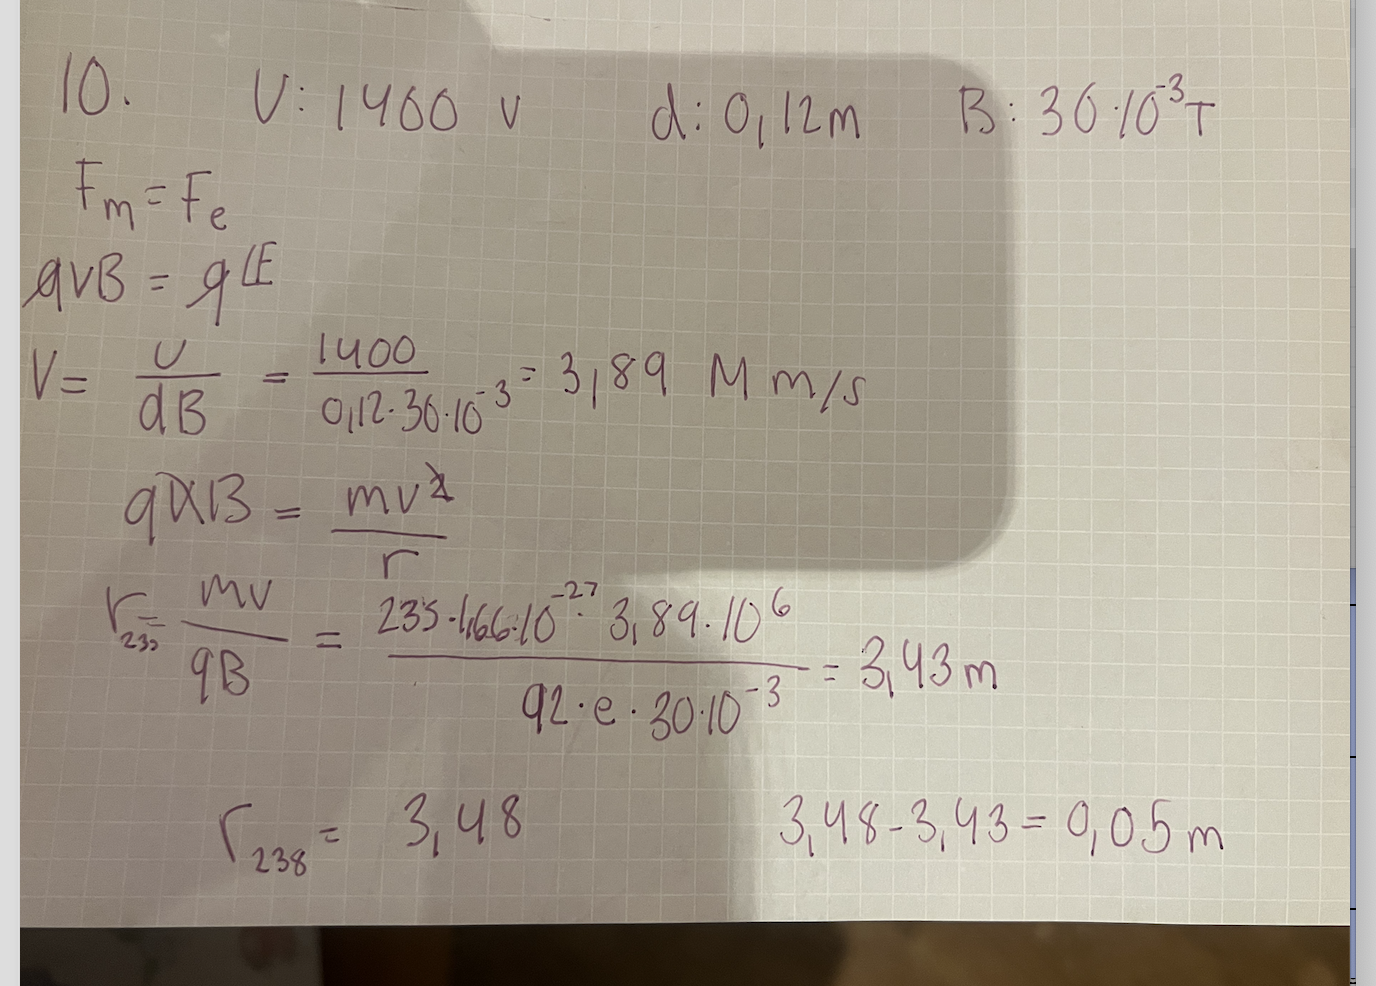 10. U: 1400 V d: 0,12m B: 30·10⁻³T
Fm = Fe
qvB = qE
V = U/dB = 1400/0,12·30·10⁻³ = 3,89 M m/s
qvB = mv²/r
r₂₃₅ = mv/qB = 235·1,66·10⁻²⁷·3,89·10⁶/92·e·30·10⁻³ = 3,43 m
r₂₃₈ = 3,48 3,48-3,43 = 0,05 m